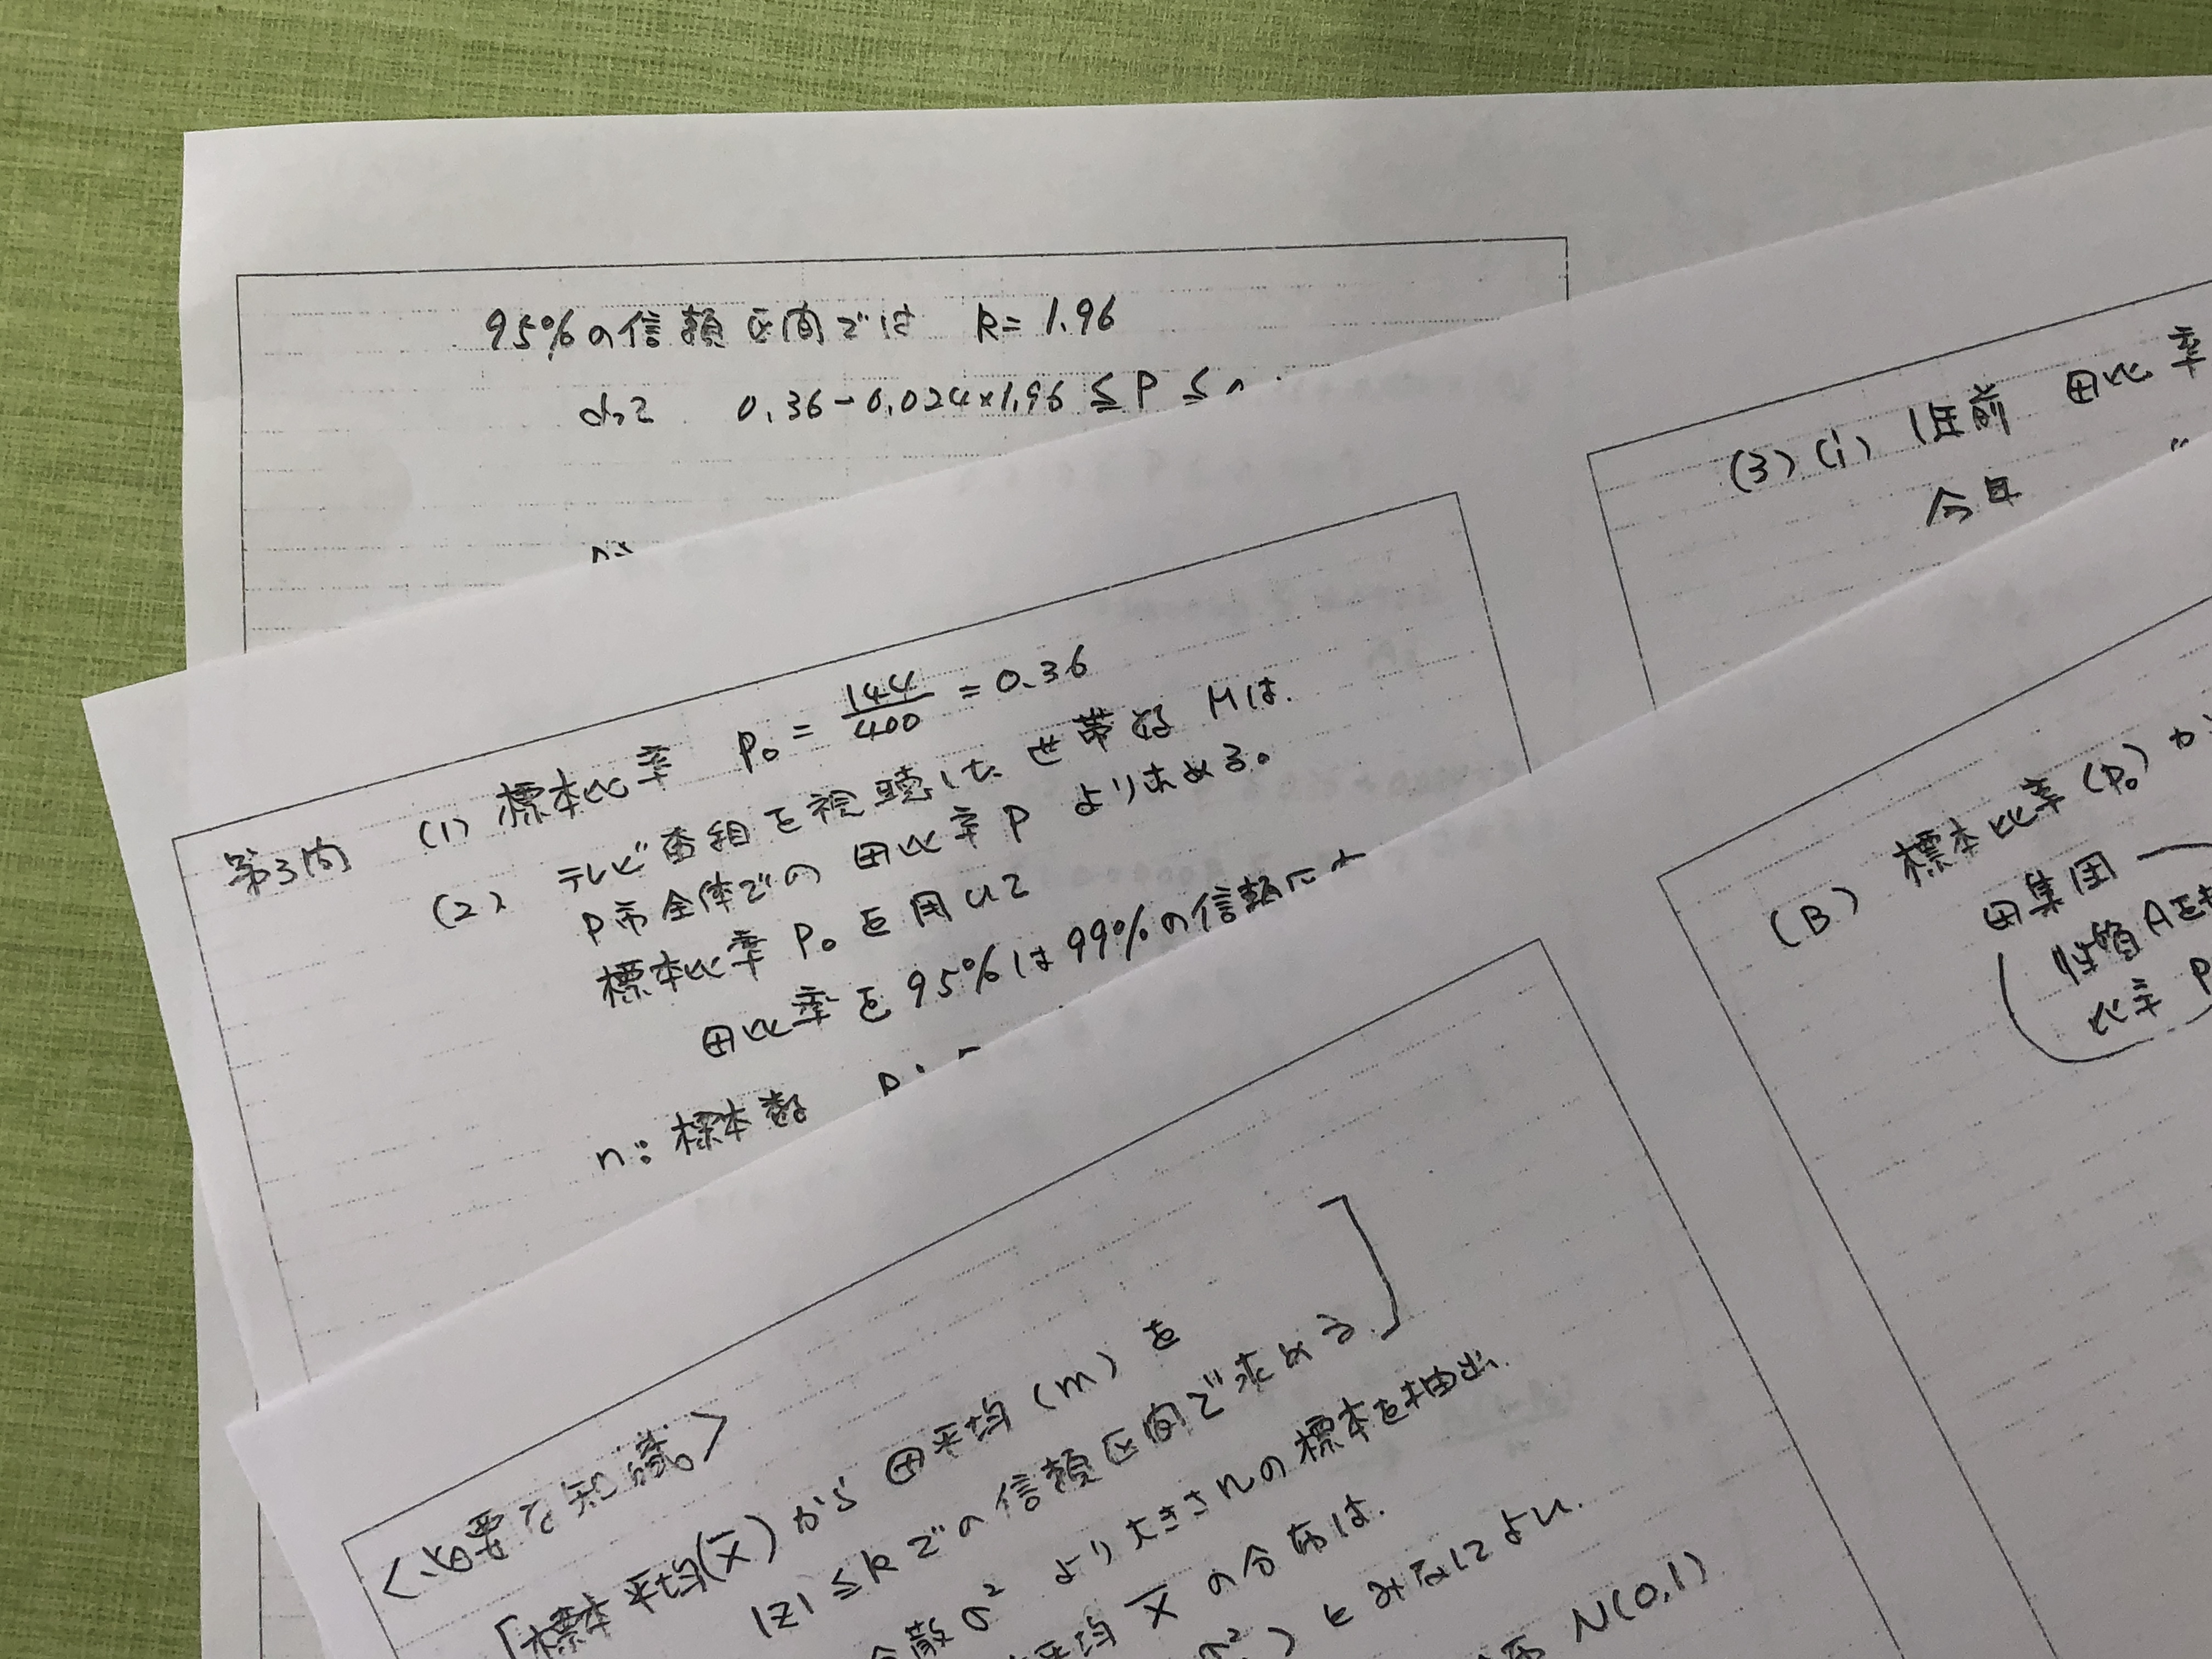 95%の信頼区間では k=1.96
よって 0.36-0.024×1.96≦P≦
(3)(i) 1年前 母比率
今年 〃
第3問 (1) 標本比率 p₀=144/400=0.36
(2) テレビ番組を視聴した世帯数Mは、
P市全体での母比率Pより求める。
標本比率P₀を用いて
母比率を95%は99%の信頼
n:標本数
(B) 標本比率(p₀)か
母集団
(性質Aをも
比率P
<必要な知識>
[標本平均(X̄)から母平均(m)を
|Z|≦kでの信頼区間で求める。]
分散σ²より大きさnの標本を抽出、
平均X̄の分布は、
σ²)とみなしてよい、
布N(0,1)